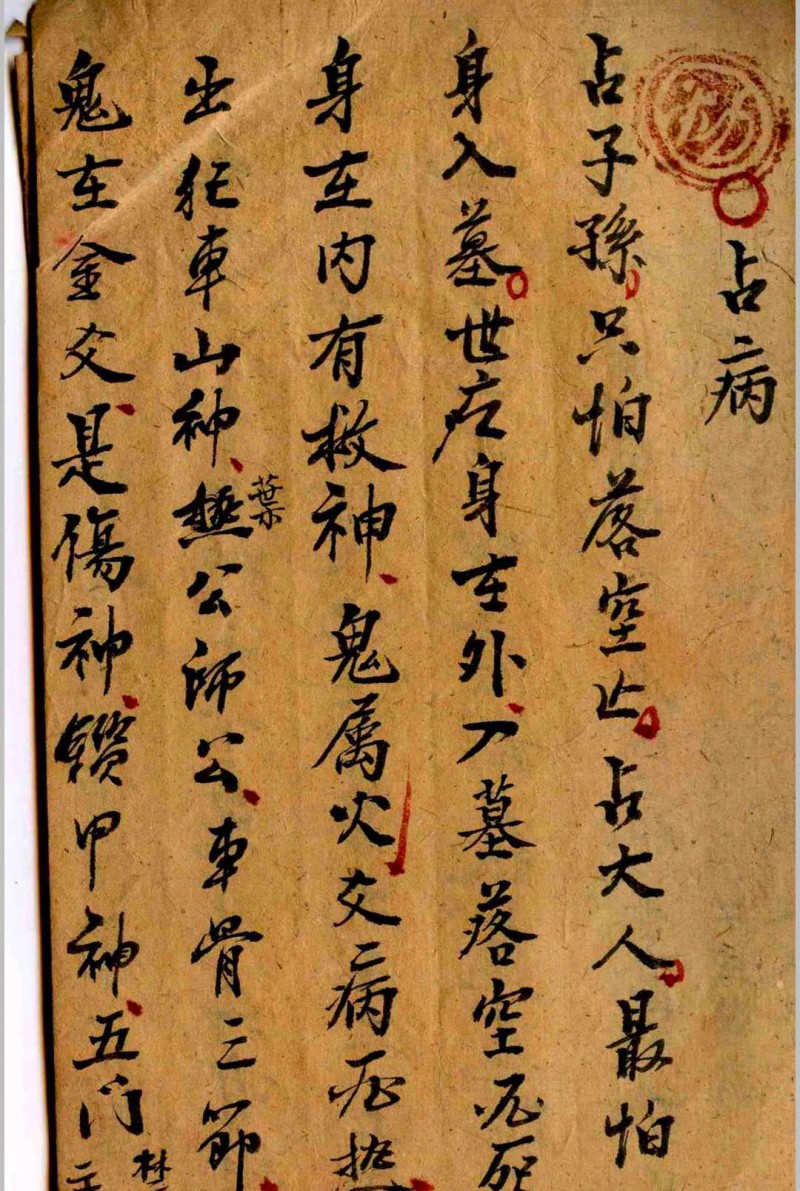 占病
占子孫只怕落空亡占大人最怕
身入墓世应身在外入墓落空必死
身在内有救神鬼属火爻病必
出犯車山神公師公車骨三節
葉
鬼在金爻是傷神鑽甲神五门